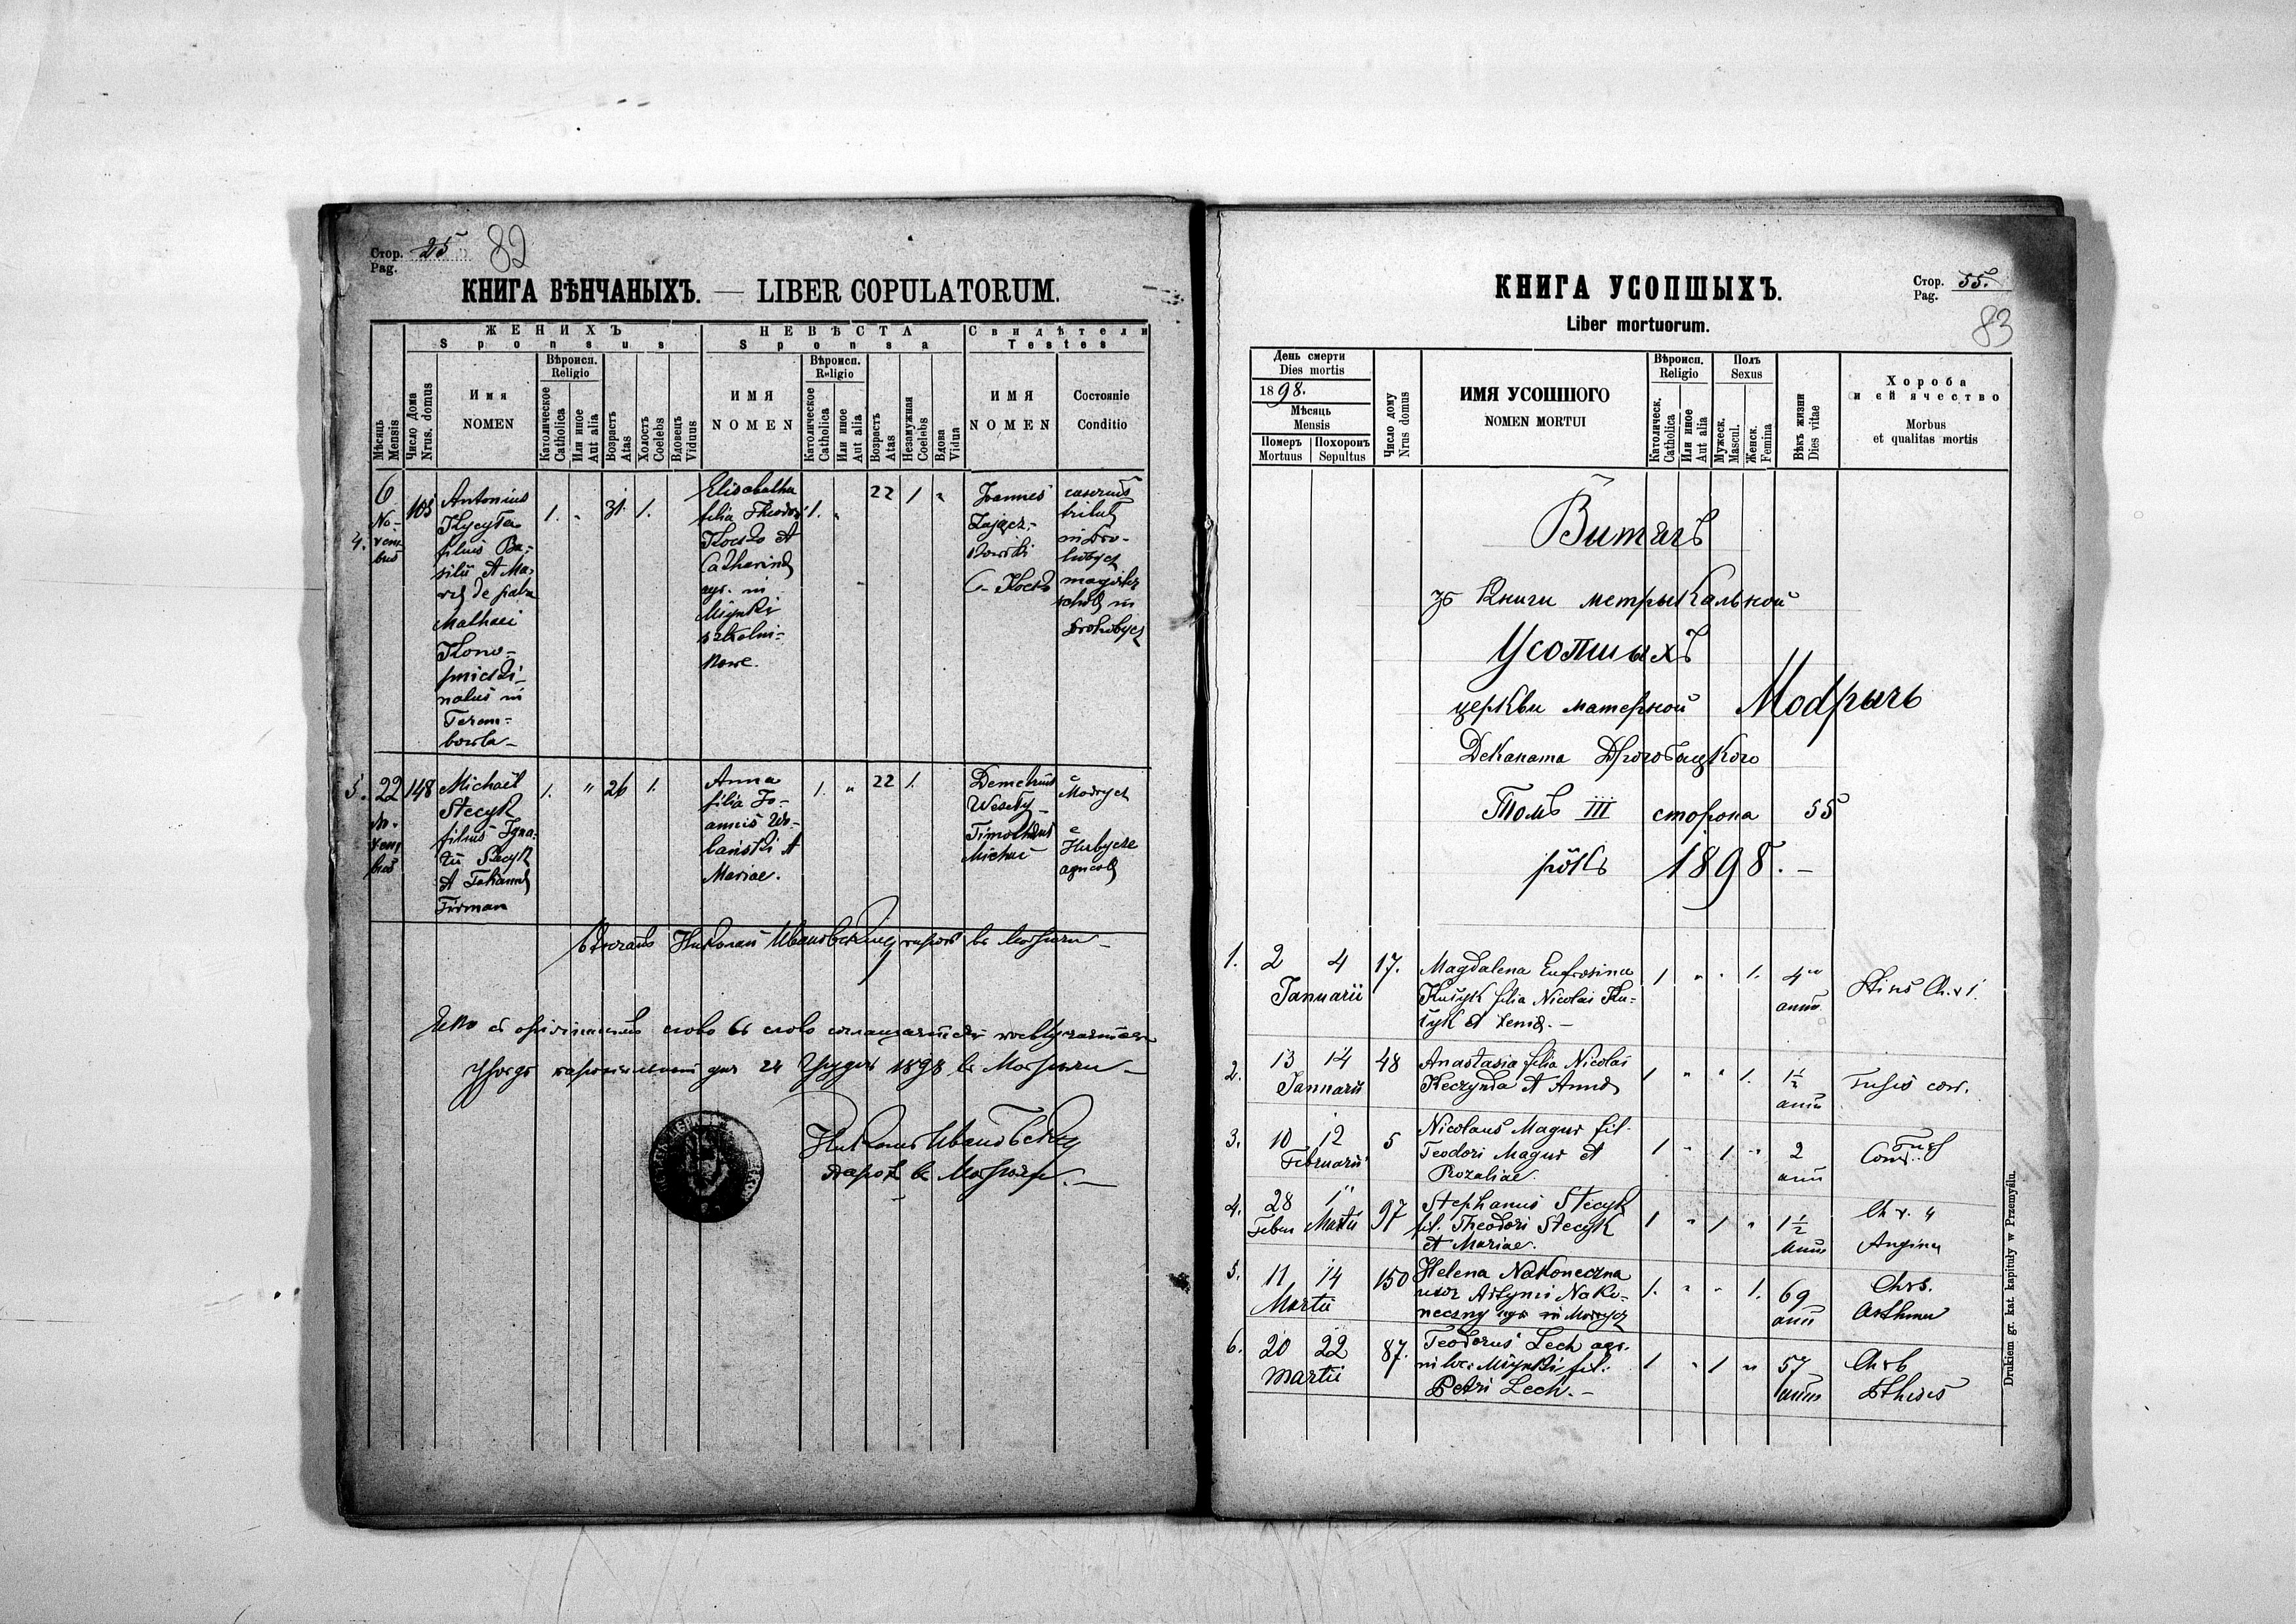 Стор. 25
Pag.
82
КНИГА ВѢНЧАНЫХЪ. — LIBER COPULATORUM.
ЖЕНИХЪ
Sponsus
НЕВѢСТА
Sponsa
Свидѣтели
Testes
Мѣсяць
Mensis
Число Дома
Nrus. domus
Имя
NOMEN
Вѣроисп.
Religio
Католическое
Catholica
Или иное
Aut alia
Возрастъ
Atas
Холостъ
Coelebs
Вдовець
Viduus
ИМЯ
NOMEN
Вѣроисп.
Religio
Католическое
Catholica
Или иное
Aut alia
Возрастъ
Atas
Незамужная
Coelebs
Вдова
Vidua
ИМЯ
NOMEN
Состояніе
Conditio
4.
6
No-
vem
bris
105
Antonius
filius Ba-
silii et Ma-
Mathaei
Kono-
pnicki
natus in
Terem-
bowla
1. " 31. 1.
Elisabetha
filia Theodori
Kocko et
Catharinae
agr. in
Młynki
szkolni-
kowe.
1. " 22 1 "
Joannes
Zającz-
kowski
in Dro-
hobycz
in
Drohobycz
5.
22
No-
vem
bris
148
Michael
Stecyk
filius Igna-
tii Stecyk
et Tatianae
Firman
1. " 26 1.
Anna
filia Jo-
annis Ur-
bański et
Mariae.
1. " 22 1.
Demetrius
Wesoły
Timotheus
Michać
e
Modrycz
e
Hubycze
agricola
Николай Ивановскій парохъ въ Модричи
слово въ слово
24 Грудня 1898 въ Модричи
Николай Ивановскій
парох въ Модричи.
КНИГА УСОПШЫХЪ.
Liber mortuorum.
Стор. 55.
Pag.
83
День смерти
Dies mortis
1898.
Мѣсяць
Mensis
Померъ
Mortuus
Похоронъ
Sepultus
Число дому
Nrus domus
ИМЯ УСОПШОГО
NOMEN MORTUI
Вѣроисп.
Religio
Католическ.
Catholica
Или иное
Aut alia
Полъ
Sexus
Мужеск.
Mascul.
Женск.
Femina
Вѣкъ жизни
Dies vitae
Хороба
и ей ячество
Morbus
et qualitas mortis
Витягъ
зъ Книги метрыкальной
Усопшыхъ
церкви матерной Модрычъ
Деканата Дрогобыцкого
Томъ III сторона 55
рôкъ 1898. —
1. 2 4 17.
Januarii
Magdalena Eufrosina
Kuśyk filia Nicolai Ku-
śyk et Xeniae. —
1 " " 1. 4
anno.
2. 13 14 48
Januarii
Anastasia filia Nicolai
Keczynda et Annae
1 " " 1. 1½
anni
Tusis con.
3. 10 12 5
Februarii
Nicolaus Magur fil.
Teodori Magur et
Rozaliae.
1 " 1 " 2
anni
4. 28 1 97
Febru Martii
Stephanus Stecyk
fil. Theodori Stecyk
et Mariae.
1 " 1 " 1½
anni
Angina
5. 11 14 150
Martii
Helena Nakoneczna
uxor Artymi Nako-
neczny agr in Modrycz
1. " " 1. 69
anni
Chrs.
Asthma
6. 20 22 87.
Martii
Teodorus Lech agr.
in loc. Młynki, fil.
Petri Lech. —
1 " 1 " 57
anni
Drukiem gr. kat. kapituły w Przemyślu.